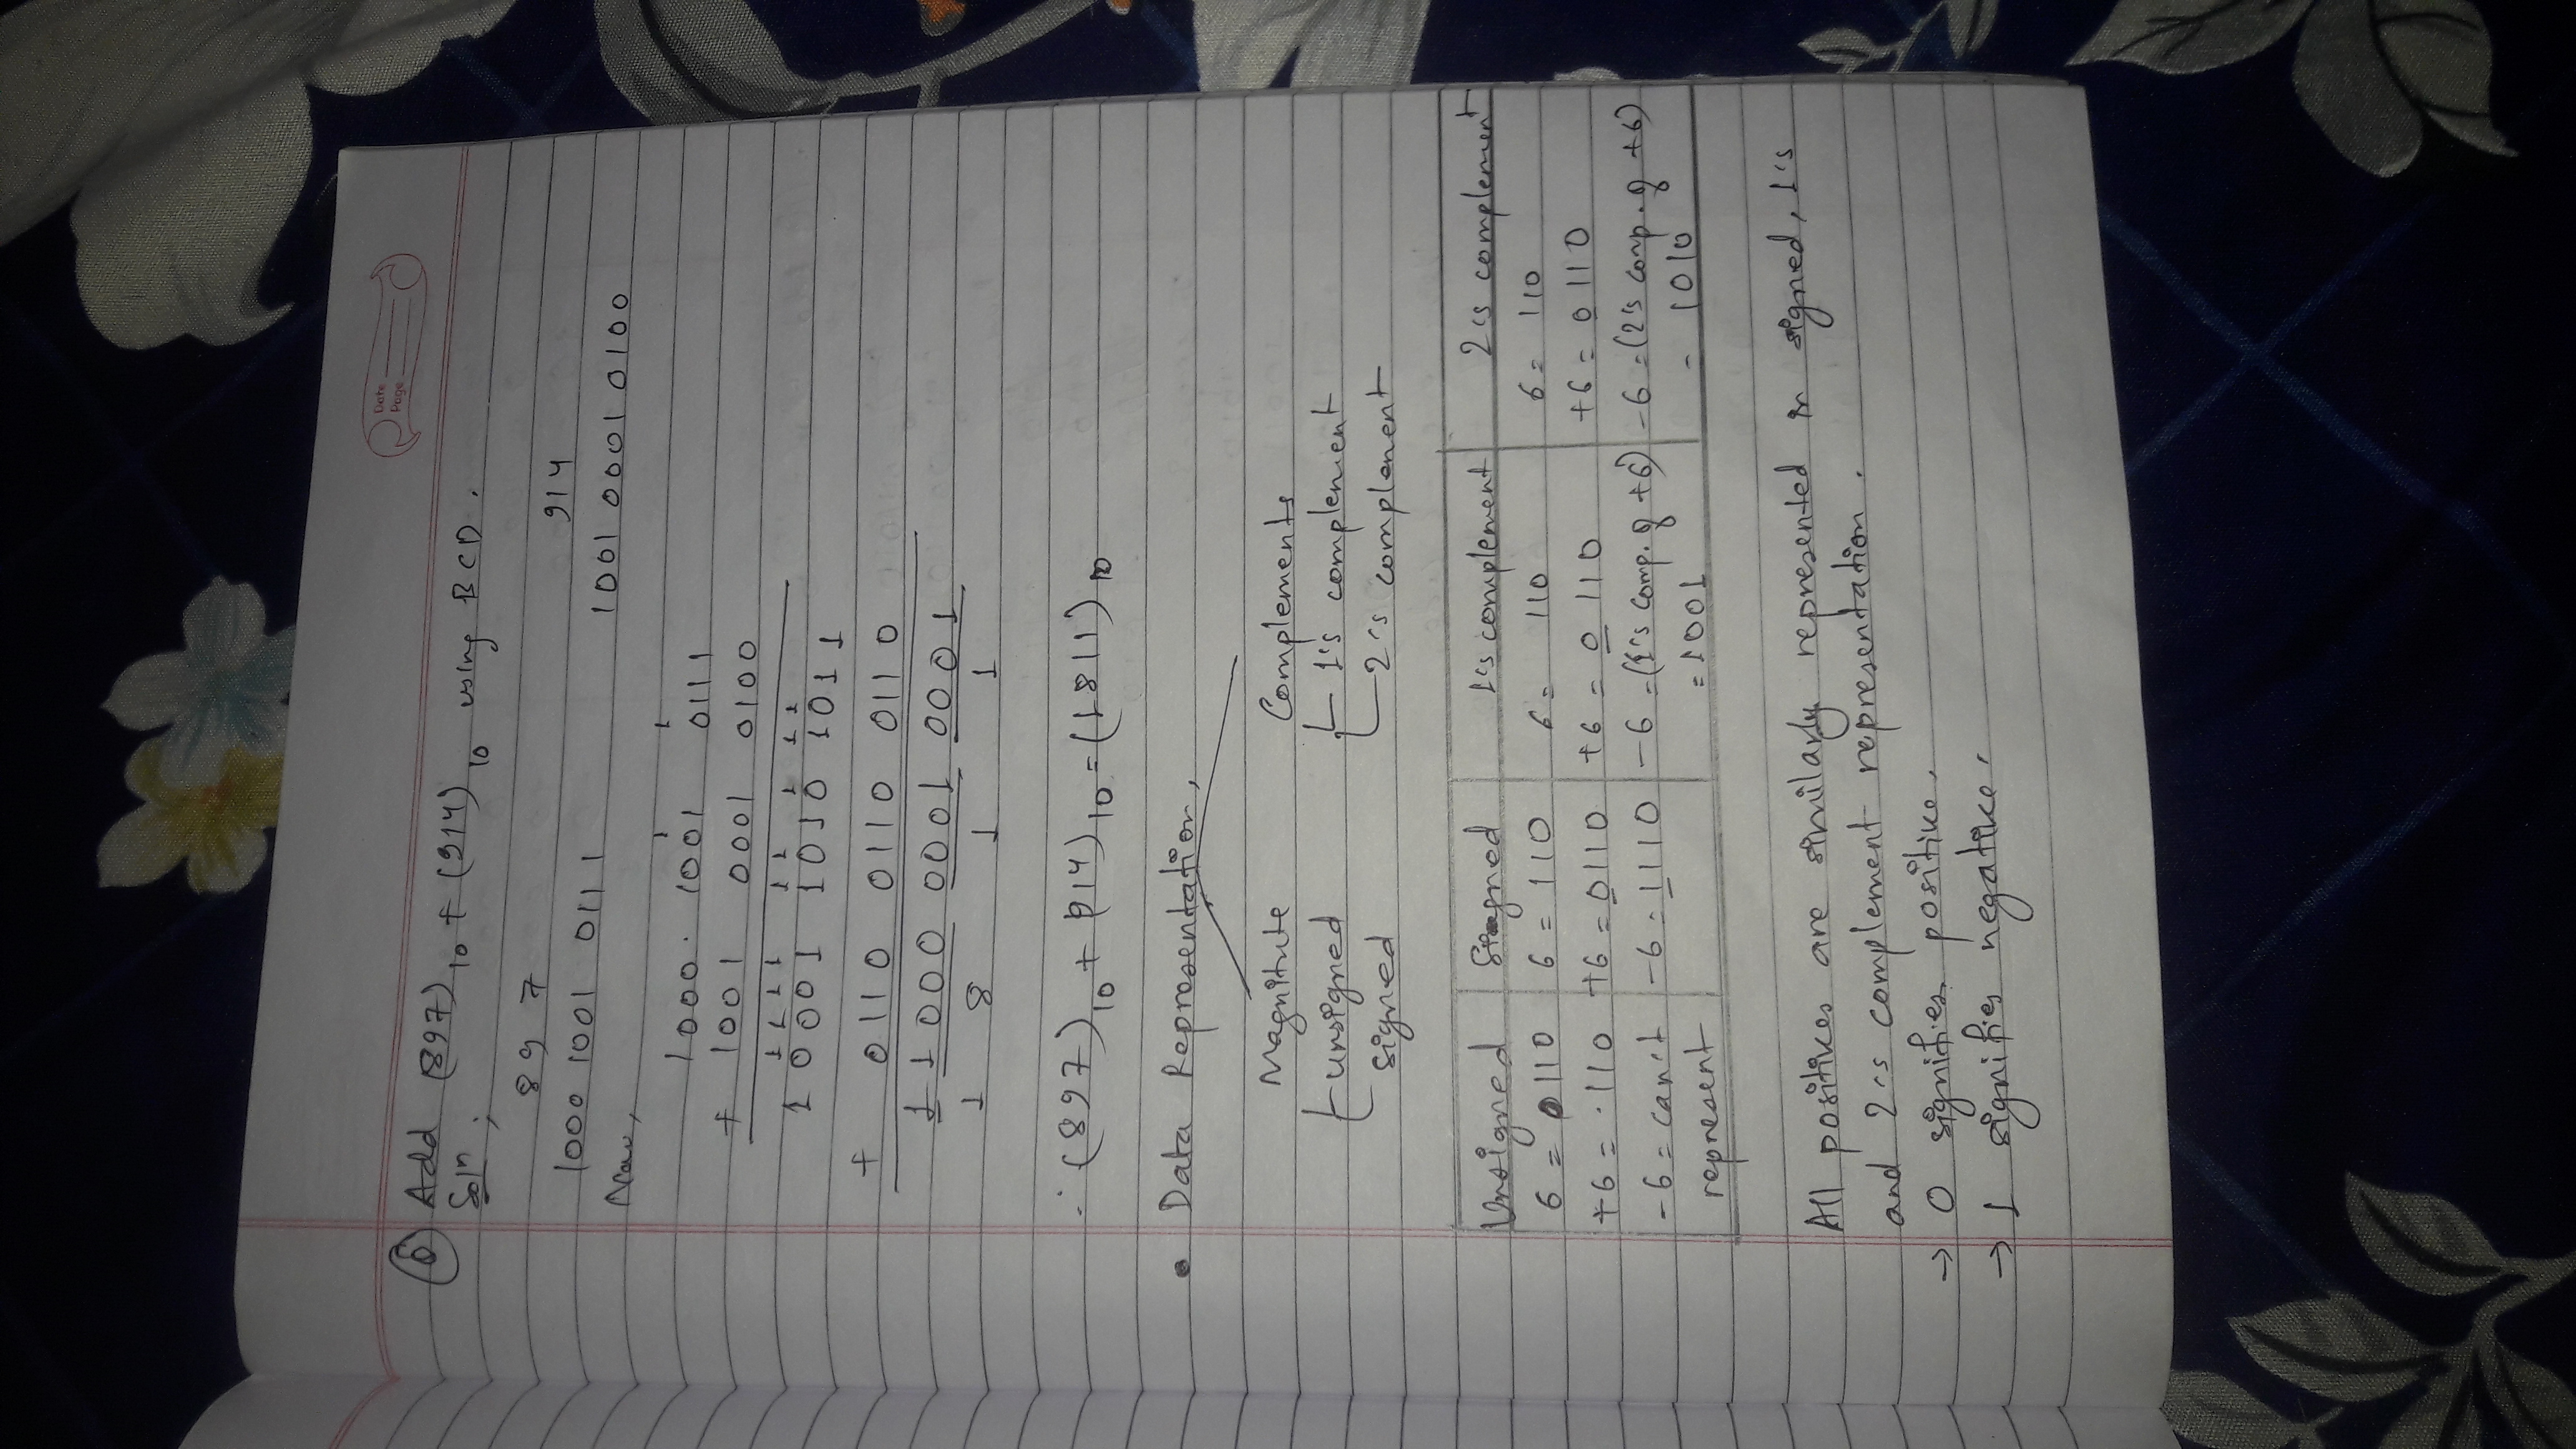 Date
Page
6 Add (897)10 + (914)10 using BCD.
Soln;
8 9 7
914
1000 1001 0111
1001 0001 0100
Now,
1 1
1000 1001 0111
+ 1001 0001 0100
1 1 1 1 1 1 1 1 1
1 0001 1010 1011
+ 0110 0110 0110
1 1000 0001 0001
1 8 1 1
∴ (897)10 + (914)10 = (1811)10
• Data Representation,
Magnitute Complements
unsigned 1's complement
signed 2's complement
Unsigned Signed 1's complement 2's complement
6 = 0110 6 = 110 6 = 110 6 = 110
+6 = 110 +6 = 0110 +6 = 0 110 +6 = 0 110
-6 = can't -6 = 1110 -6 = (1's comp. of +6) -6 = (2's comp. of +6)
represent = 1001 = 1010
All positives are similarly represented in signed, 1's
and 2's complement representation.
→ 0 signifies positive.
→ 1 signifies negative.